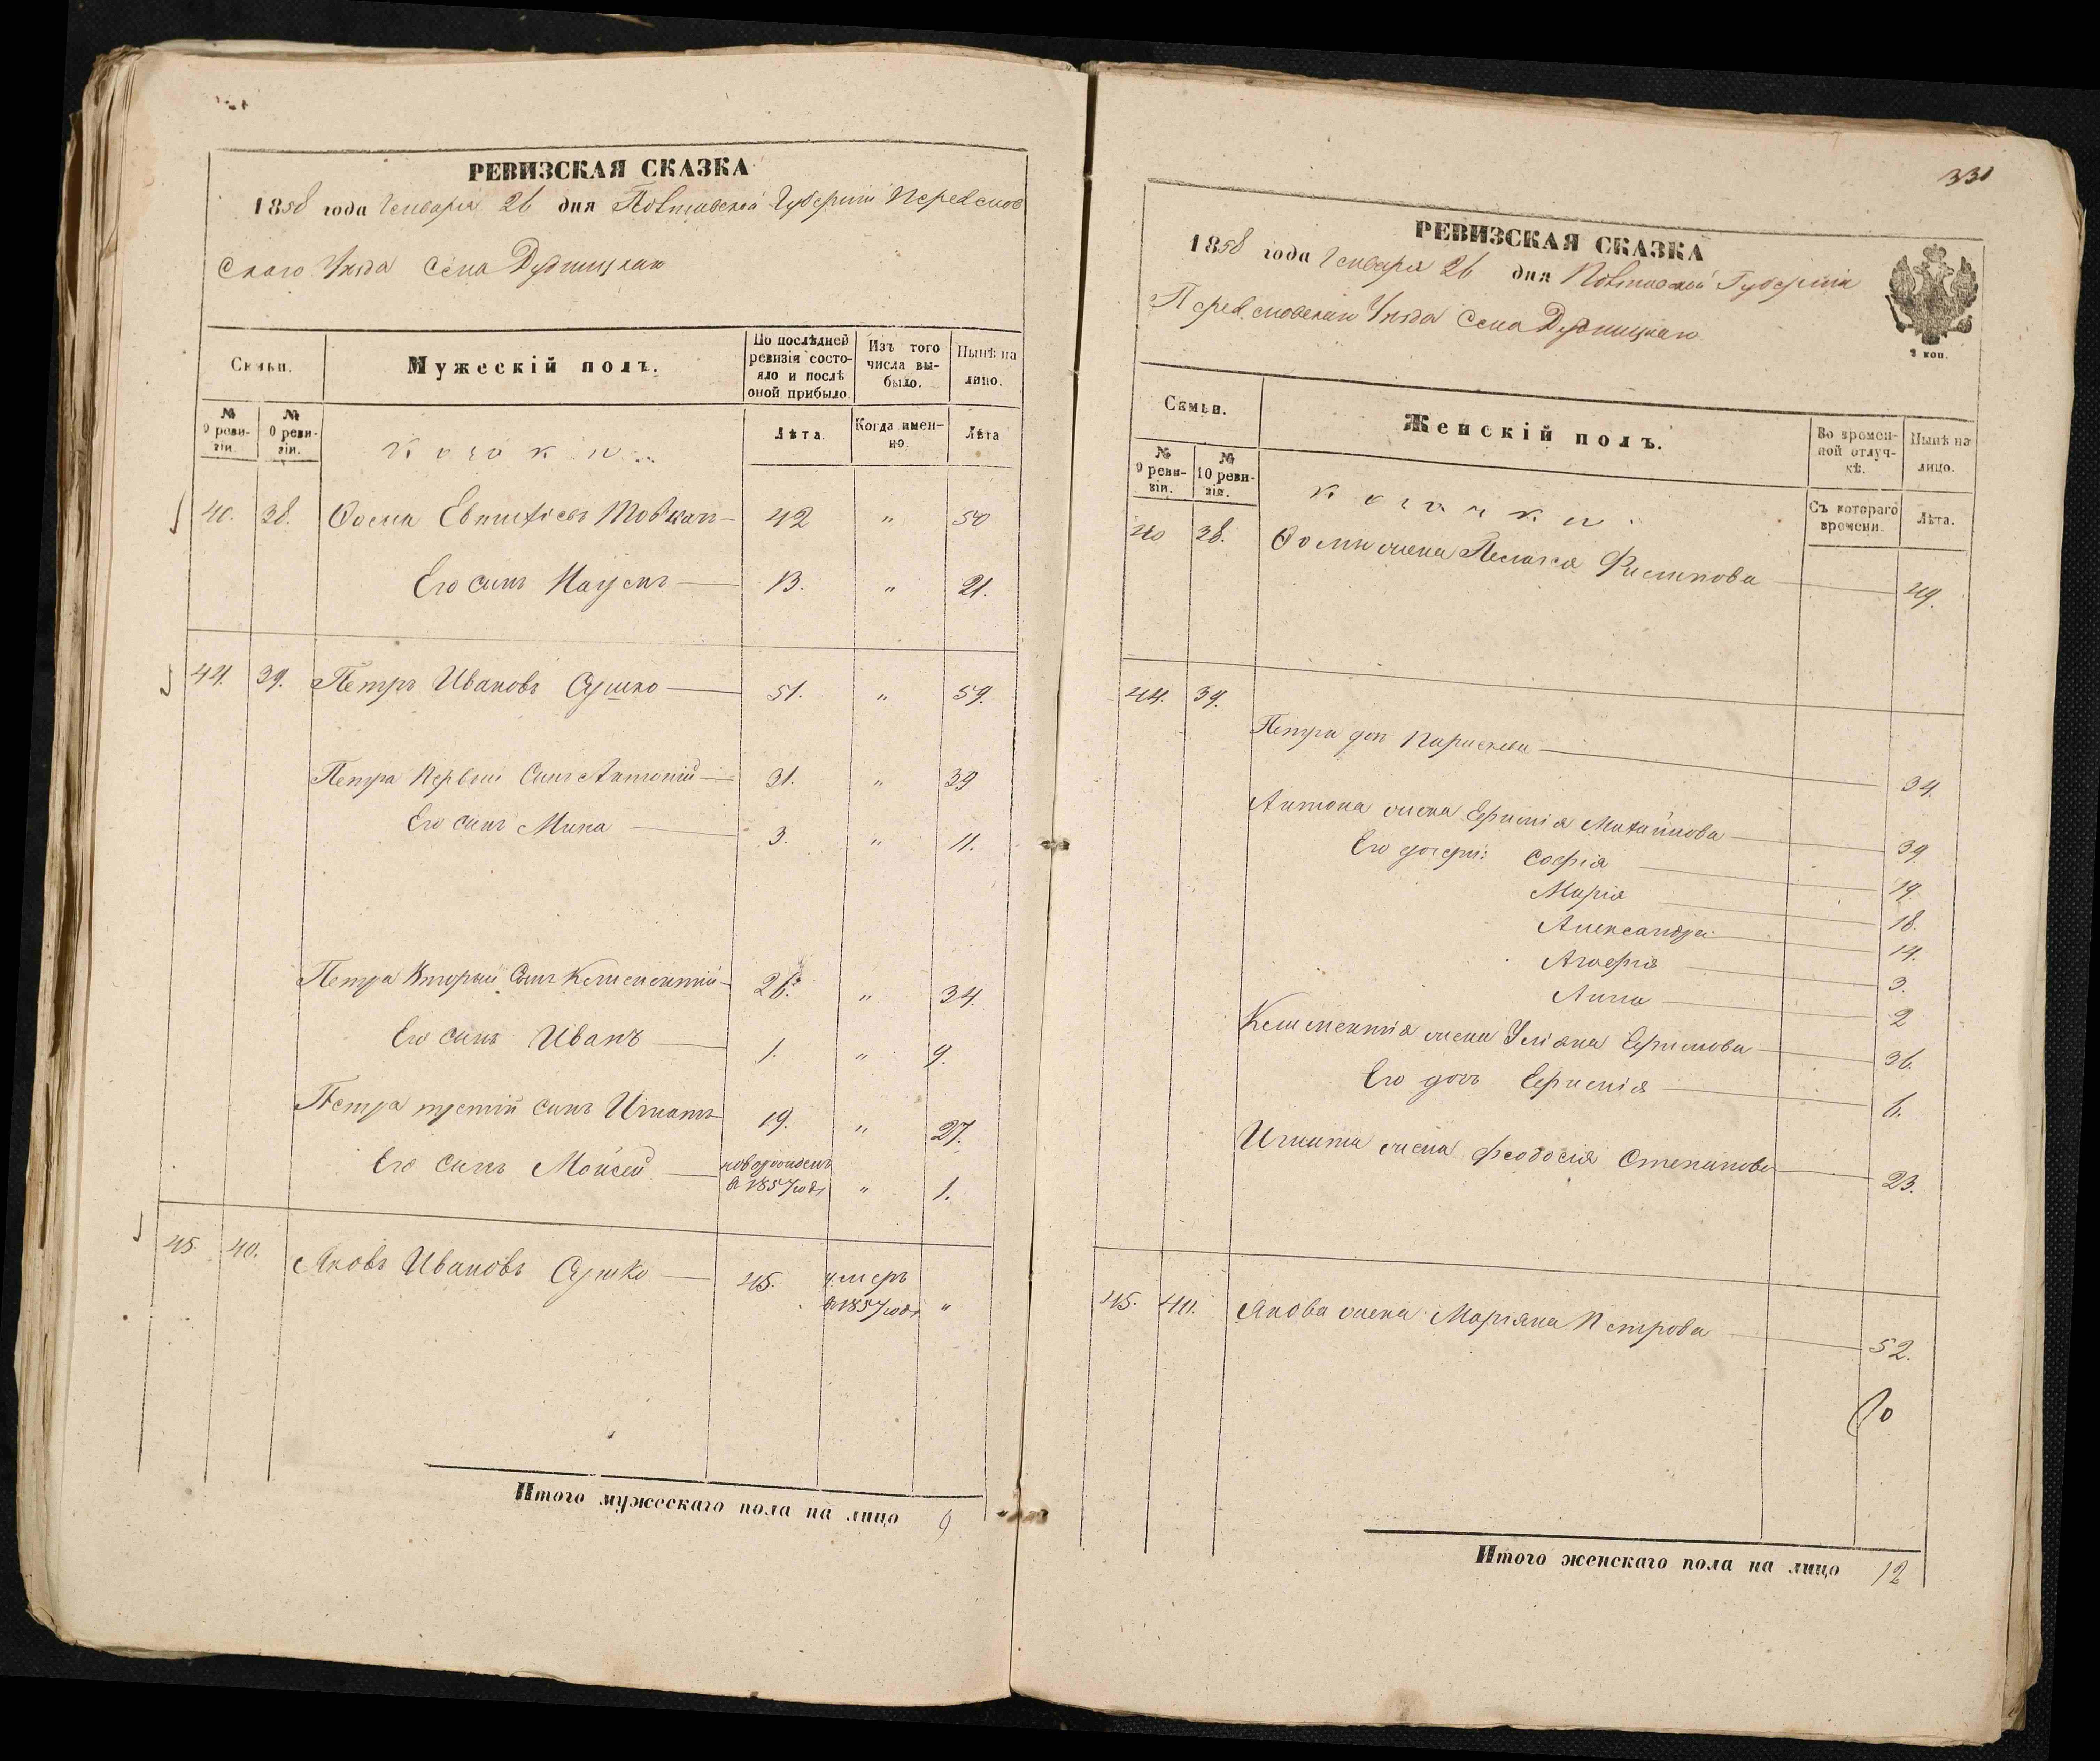 РЕВИЗСКАЯ СКАЗКА
1858 года Генваря 26 дня Полтавской Губерніи Переяслов
скаго Уѣзда Села Дудницкаго
Семьи.
Мужескій полъ.
По послѣдней ревизія состояло и послѣ оной прибыло.
Изъ того числа выбыло.
Нынѣ на лицо.
№ 9 ревизіи.
№ 0 ревизіи.
Козаки
Лѣта.
Когда именно.
Лѣта
40. 38. Фома Евтихіевъ Товкачъ 42 " 50
Его сынъ Наумъ 13. " 21.
44. 39. Петръ Ивановъ Сушко 51. " 59.
Петра Первый Сынъ Антоній 31. " 39
Его сынъ Мина 3. " 11.
Петра Вторый Сынъ Клементій 26. " 34.
Его сынъ Иванъ 1. " 9.
Петра третій сынъ Игнатъ 19. " 27.
Его сынъ Моисей новорожденъ в 1857 годѣ " 1.
45. 40. Яковъ Ивановъ Сушко 45. умеръ в 1857 годѣ "
Итого мужескаго пола на лицо 9
330
РЕВИЗСКАЯ СКАЗКА
1858 года Генваря 26 дня Полтавской Губерніи
Переясловскаго Уѣзда Села Дудницкаго
2 коп.
Семьи.
Женскій полъ.
Во временной отлучкѣ.
Нынѣ на лицо.
№ 9 ревизіи.
№ 10 ревизіи.
Козачки.
Съ котораго времени.
Лѣта.
40 38. Фомы жена Пелагея Филипова 49.
44. 39.
Петра дочь Параскева 34.
Антона жена Ефимія Михайлова 39
Его дочери: Софія 19.
Марія 18.
Александра 14.
Агафія 3.
Анна 2
Клементія жена Уліана Ефимова 36.
Его дочь Ефимія 6.
Игната жена Феодосія Степанова 23.
45. 40. Якова жена Маріана Петрова 52.
Итого женскаго пола на лицо 12